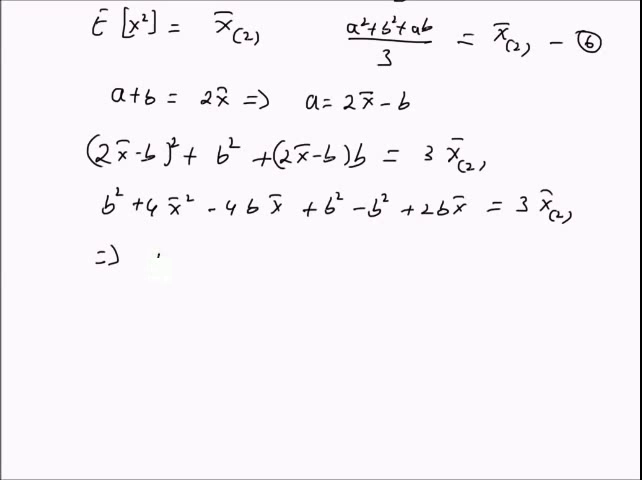 E[x²] = x̄₍₂₎   (a²+b²+ab)/3 = x̄₍₂₎ - ⑥
a+b = 2x̄ => a = 2x̄ - b
(2x̄-b)² + b² + (2x̄-b)b = 3 x̄₍₂₎
b² + 4x̄² - 4bx̄ + b² - b² + 2bx̄ = 3 x̄₍₂₎
=>